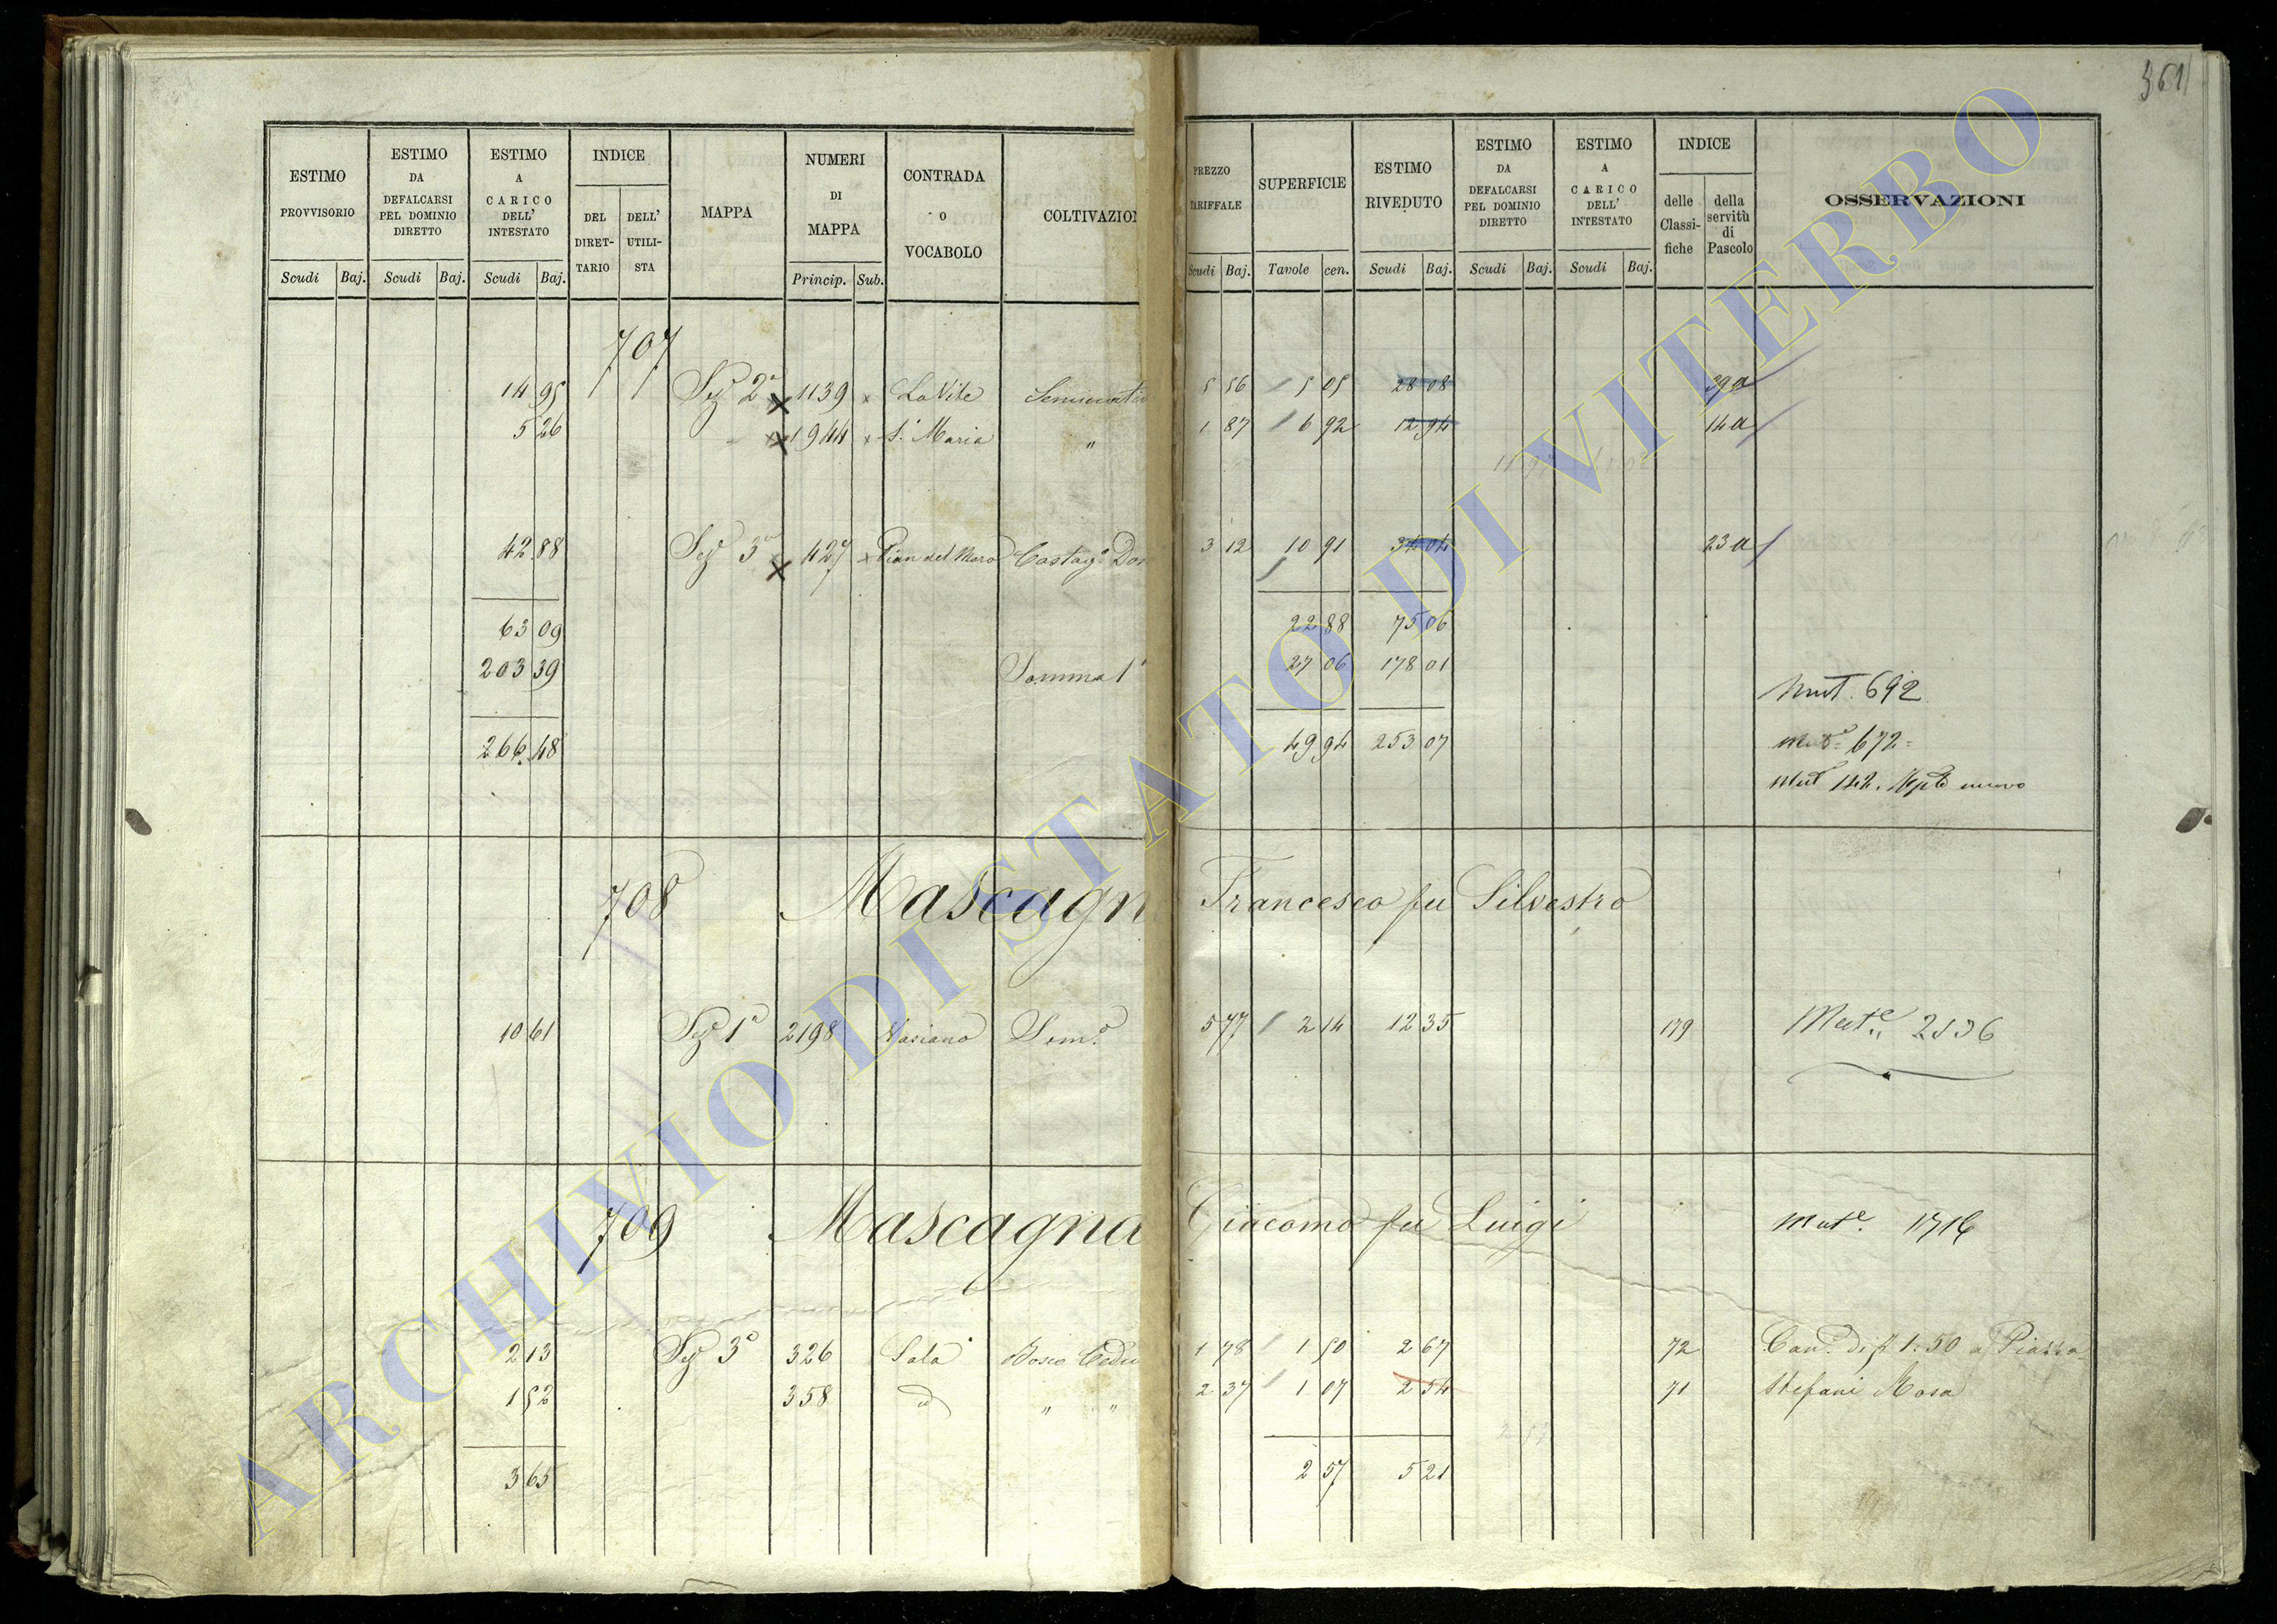 361
ESTIMO PROVVISORIO
Scudi Baj.
ESTIMO DA DEFALCARSI PEL DOMINIO DIRETTO
Scudi Baj.
ESTIMO A CARICO DELL' INTESTATO
Scudi Baj.
INDICE
DEL DIRET- TARIO
DELL' UTILI- STA
MAPPA
NUMERI DI MAPPA
Princip. Sub.
CONTRADA o VOCABOLO
COLTIVAZION
PREZZO TARIFFALE
Scudi Baj.
SUPERFICIE
Tavole cen.
ESTIMO RIVEDUTO
Scudi Baj.
ESTIMO DA DEFALCARSI PEL DOMINIO DIRETTO
Scudi Baj.
ESTIMO A CARICO DELL' INTESTATO
Scudi Baj.
INDICE
delle Classi- fiche
della servitù di Pascolo
OSSERVAZIONI
707
14 95 Sez 2a 1139 La Vite 5 56 5 05 28 08 39 a
5 26 1944 S. Maria " 1 87 6 92 12 94 14 a
42 88 Sez 3a 427 Pian del Moro Castag. Dom 3 12 10 91 34 04 23 a
63 09 22 88 75 06
203 39 Somma 1 27 06 178 01
Mut. 692
266 48 49 94 253 07 Mut. 672
Mut 142. nuovo
708 Mascagn Francesco fu Silvestro
10 61 Sez 1a 2198 Vasiano Sem. 5 77 2 14 12 35 179 Mut.e 2536
709 Mascagna Giacomo fu Luigi Mut.e 1716
2 13 Sez 3a 326 Sala Bosco Cedu 1 78 1 50 2 67 72 Can. di 1:50 a Piazza
1 52 358 d " " 2 37 1 07 2 54 71 Stefani Rosa
3 65 2 57 5 21
ARCHIVIO DI STATO DI VITERBO